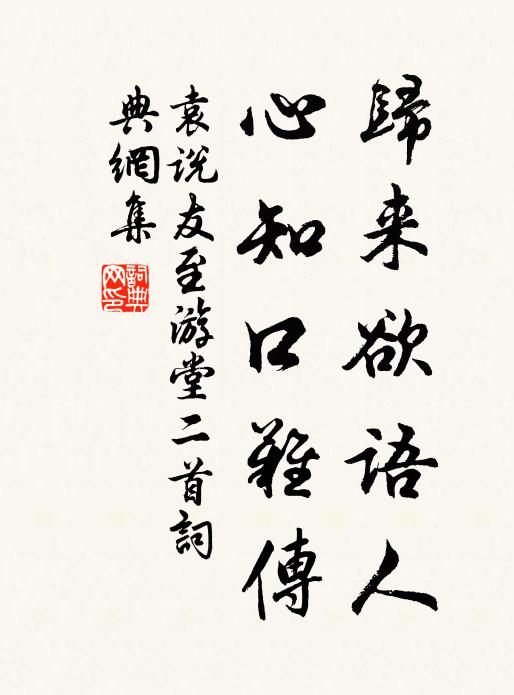 歸来欲語人
心知口難傳
袁説友至游堂二首詞
典網集
詞典
网印